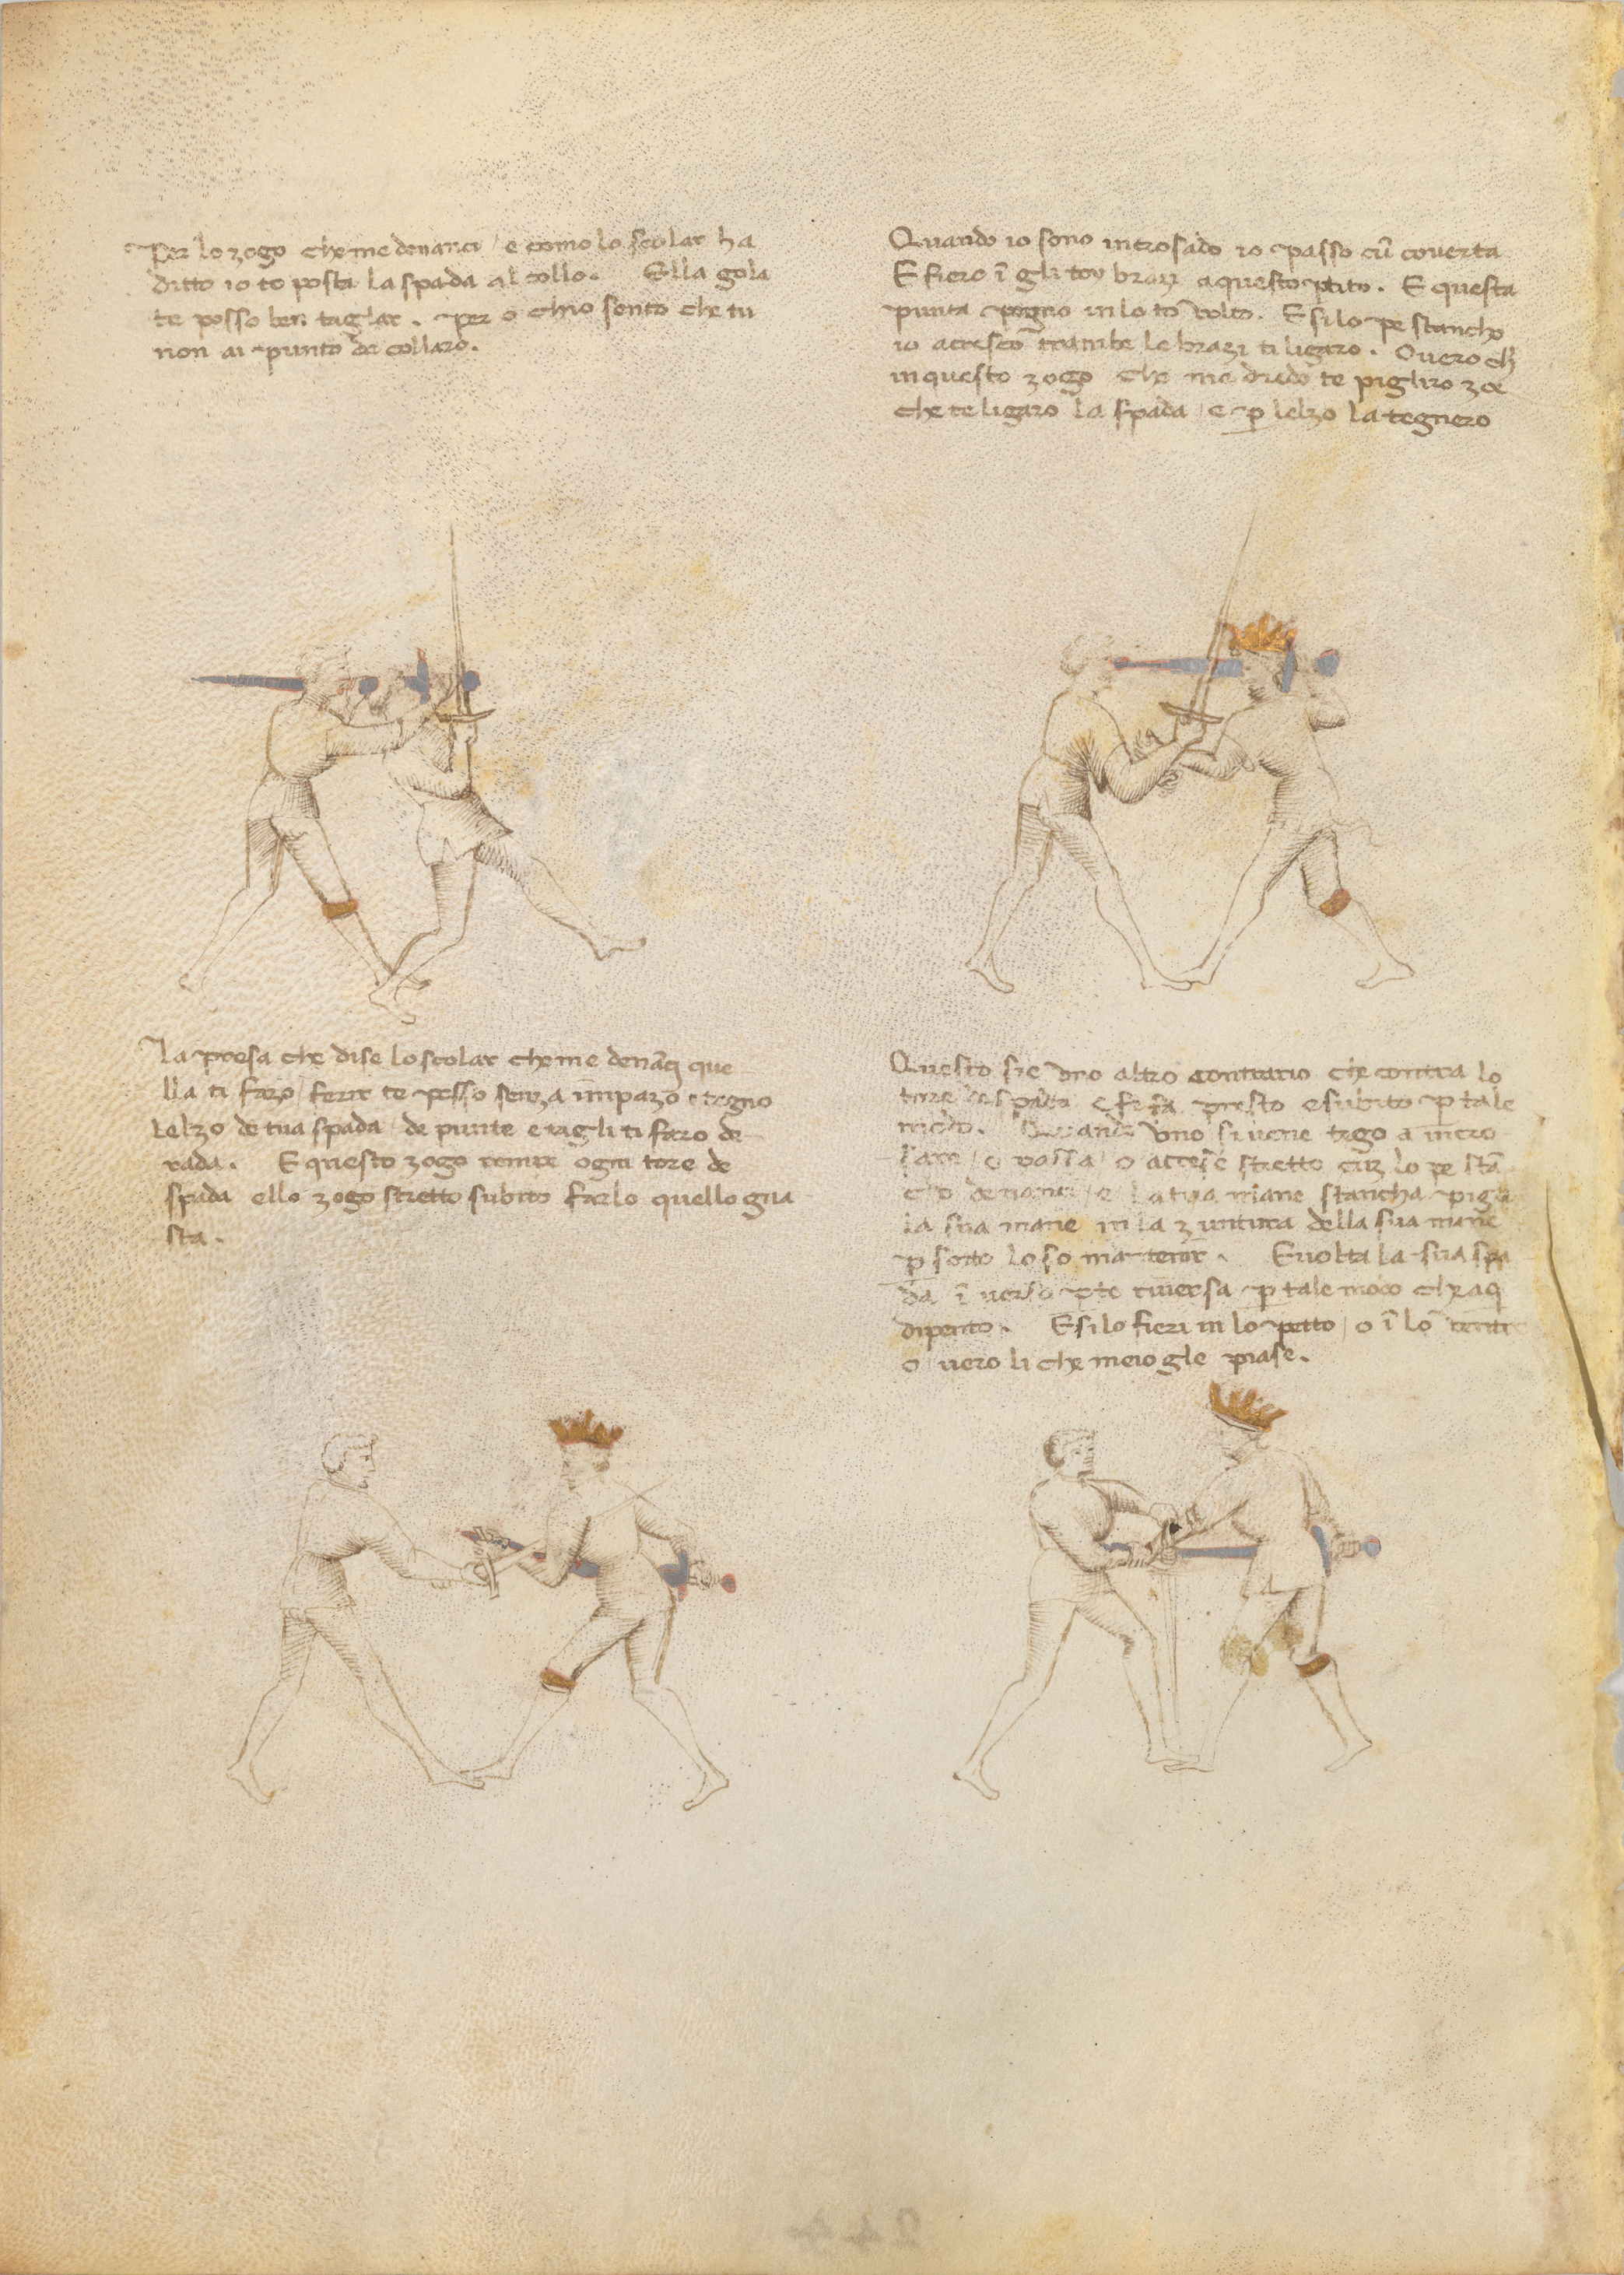 Per lo zogo che me denanci / e como lo scolar ha
ditto io to posta la spada al collo. Ella gola
te posso ben taglar. Per o chio sento che tu
non ai punto de collaro.
Quando io sono incrosado io passo cū coverta
E fiero ī gli toy brazi a questo ptito. E questa
punta pogno in lo to volto. E si lo pe stancho
io acresco trambe le brazi ti ligaro. Overo ch̄
in questo zogo che me dredo te pigliro zoe
che te ligaro la spada / e p̱ lelzo la tegnero
La presa che dise lo scolar che me denāci que
lla ti fazo / ferir te posso senza impazo e tegno
Lelzo de tua spada / de punte e tagli ti faro de
rada. E questo zogo rompe ogni tore de
spada ello zogo stretto subito farlo quello gua
sta.
Questo sie uno altro contrario che contra lo
tore de spada e se fa presto e subito p̱ tale
modo. Quando uno si vene tego a incro
sare / o passa / o acrese stretto cūz lo pe stā
cho denanci / e la tua mane stancha pigla
la sua mane in la zuntura della sua mane
p̱ sotto lo so mantenir. E volta la sua spa
da ī verso pte riversa p̱ tale modo che aq
dipento. E si lo fieri in lo petto / o ī lo ventre
o / vero li che meio gle piase.
244